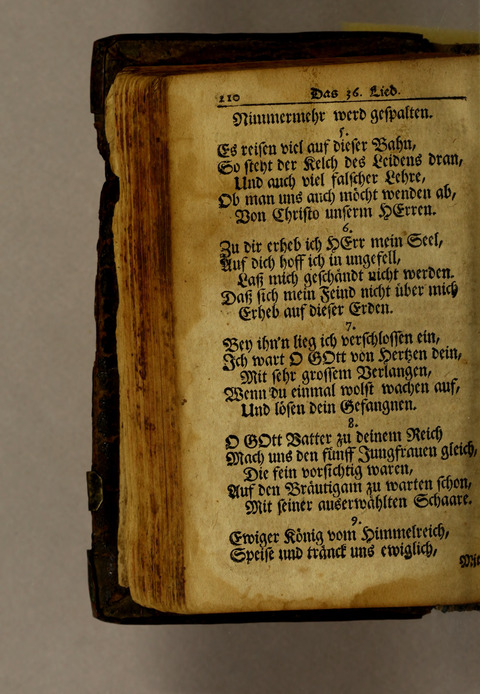 210 Das 36. Lied.
Nimmermehr werd gespalten.
5.
Es reisen viel auf dieser Bahn,
So steht der Kelch des Leidens dran,
Und auch viel falscher Lehre,
Ob man uns auch möcht wenden ab,
Von Christo unserm HErren.
6.
Zu dir erheb ich HErr mein Seel,
Auf dich hoff ich in ungefell,
Laß mich geschändt nicht werden.
Daß sich mein Feind nicht über mich
Erheb auf dieser Erden.
7.
Bey ihn'n lieg ich verschlossen ein,
Ich wart O GOtt von Hertzen dein,
Mit sehr grossem Verlangen,
Wenn du einmal wolst wachen auf,
Und lösen dein Gefangnen.
8.
O GOtt Vatter zu deinem Reich
Mach uns den fünff Jungfrauen gleich,
Die fein vorsichtig waren,
Auf den Bräutigam zu warten schon,
Mit seiner auserwählten Schaare.
9.
Ewiger König vom Himmelreich,
Speise und tränck uns ewiglich,
Mit